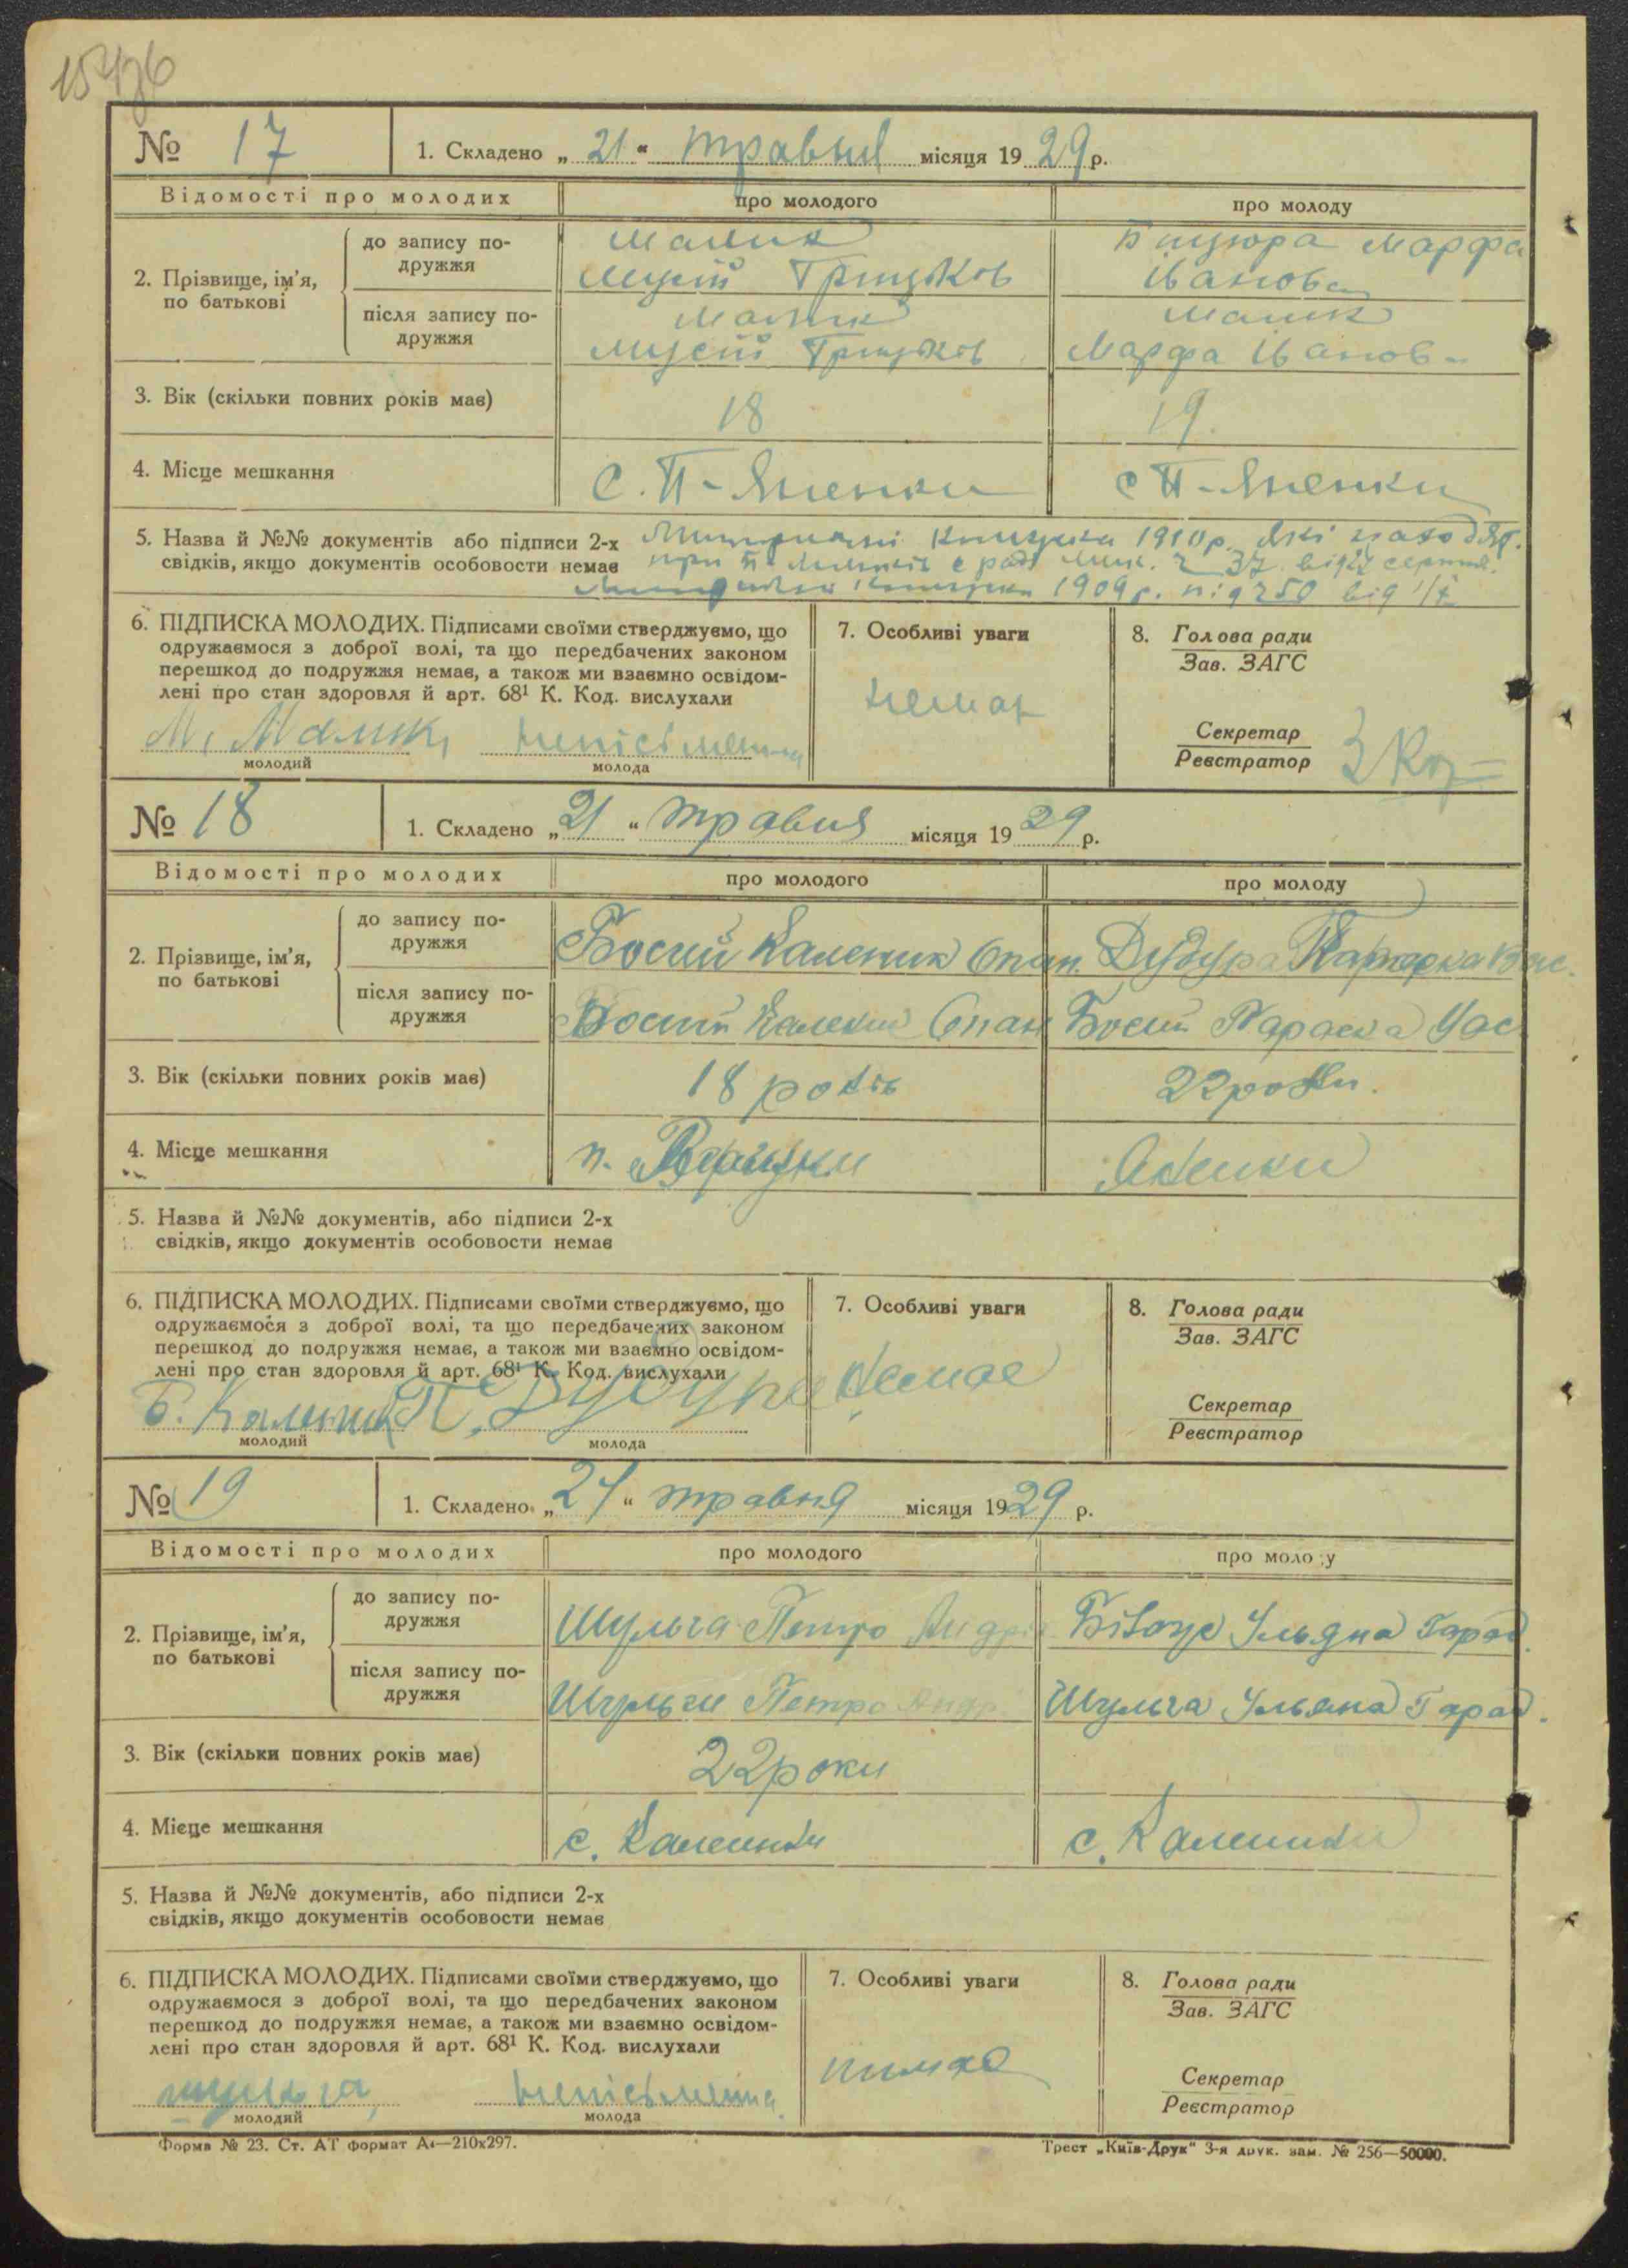 № 17
1. Складено „ 21 “ травня місяця 1929 р.
Відомості про молодих про молодого про молоду
2. Прізвище, ім'я, по батькові
до запису подружжя
Малик Марфа
Мусій Грицьков Іванова
після запису подружжя
Малик Малик
Мусій Грицьков Марфа Іванов
3. Вік (скільки повних років має) 18 19.
4. Місце мешкання С. П-Яненки с П-Яненки
5. Назва й №№ документів або підписи 2-х 1910 р. які находят.
свідків, якщо документів особовости немає при 37 від
1909 р. під 250 від
6. ПІДПИСКА МОЛОДИХ. Підписами своїми стверджуємо, що
одружаємося з доброї волі, та що передбачених законом
перешкод до подружжя немає, а також ми взаємно освідом-
лені про стан здоровля й арт. 68¹ К. Код. вислухали
М. Малик, непісьменна
молодий молода
7. Особливі уваги
немає
8. Голова ради
Зав. ЗАГС
Секретар
Реєстратор
№ 18
1. Складено „ 21 “ травня місяця 1929 р.
Відомості про молодих про молодого про молоду
2. Прізвище, ім'я, по батькові
до запису подружжя
Босий Каленик Опан. Дудура Параска Вас.
після запису подружжя
Босий Опан Босий Параска
3. Вік (скільки повних років має) 18 років 22 роки.
4. Місце мешкання п. Яненки
5. Назва й №№ документів, або підписи 2-х
свідків, якщо документів особовости немає
6. ПІДПИСКА МОЛОДИХ. Підписами своїми стверджуємо, що
одружаємося з доброї волі, та що передбачених законом
перешкод до подружжя немає, а також ми взаємно освідом-
лені про стан здоровля й арт. 68¹ К. Код. вислухали
Б. Каленик П. Дудура
молодий молода
7. Особливі уваги
Немає
8. Голова ради
Зав. ЗАГС
Секретар
Реєстратор
№ 19
1. Складено „ 27 “ травня місяця 1929 р.
Відомості про молодих про молодого про молоду
2. Прізвище, ім'я, по батькові
до запису подружжя
Шульга Петро Андрі Ульяна Гарас.
після запису подружжя
Шульги Петро Андр. Шульга Ульяна Гарас.
3. Вік (скільки повних років має) 22 роки
4. Місце мешкання с. Каленики с. Каленики
5. Назва й №№ документів, або підписи 2-х
свідків, якщо документів особовости немає
6. ПІДПИСКА МОЛОДИХ. Підписами своїми стверджуємо, що
одружаємося з доброї волі, та що передбачених законом
перешкод до подружжя немає, а також ми взаємно освідом-
лені про стан здоровля й арт. 68¹ К. Код. вислухали
шульга, непісьменна
молодий молода
7. Особливі уваги
8. Голова ради
Зав. ЗАГС
Секретар
Реєстратор
Форма № 23. Ст. АТ формат А4—210x297.
Трест „Київ-Друк“ 3-я друк. зам. № 256—50000.